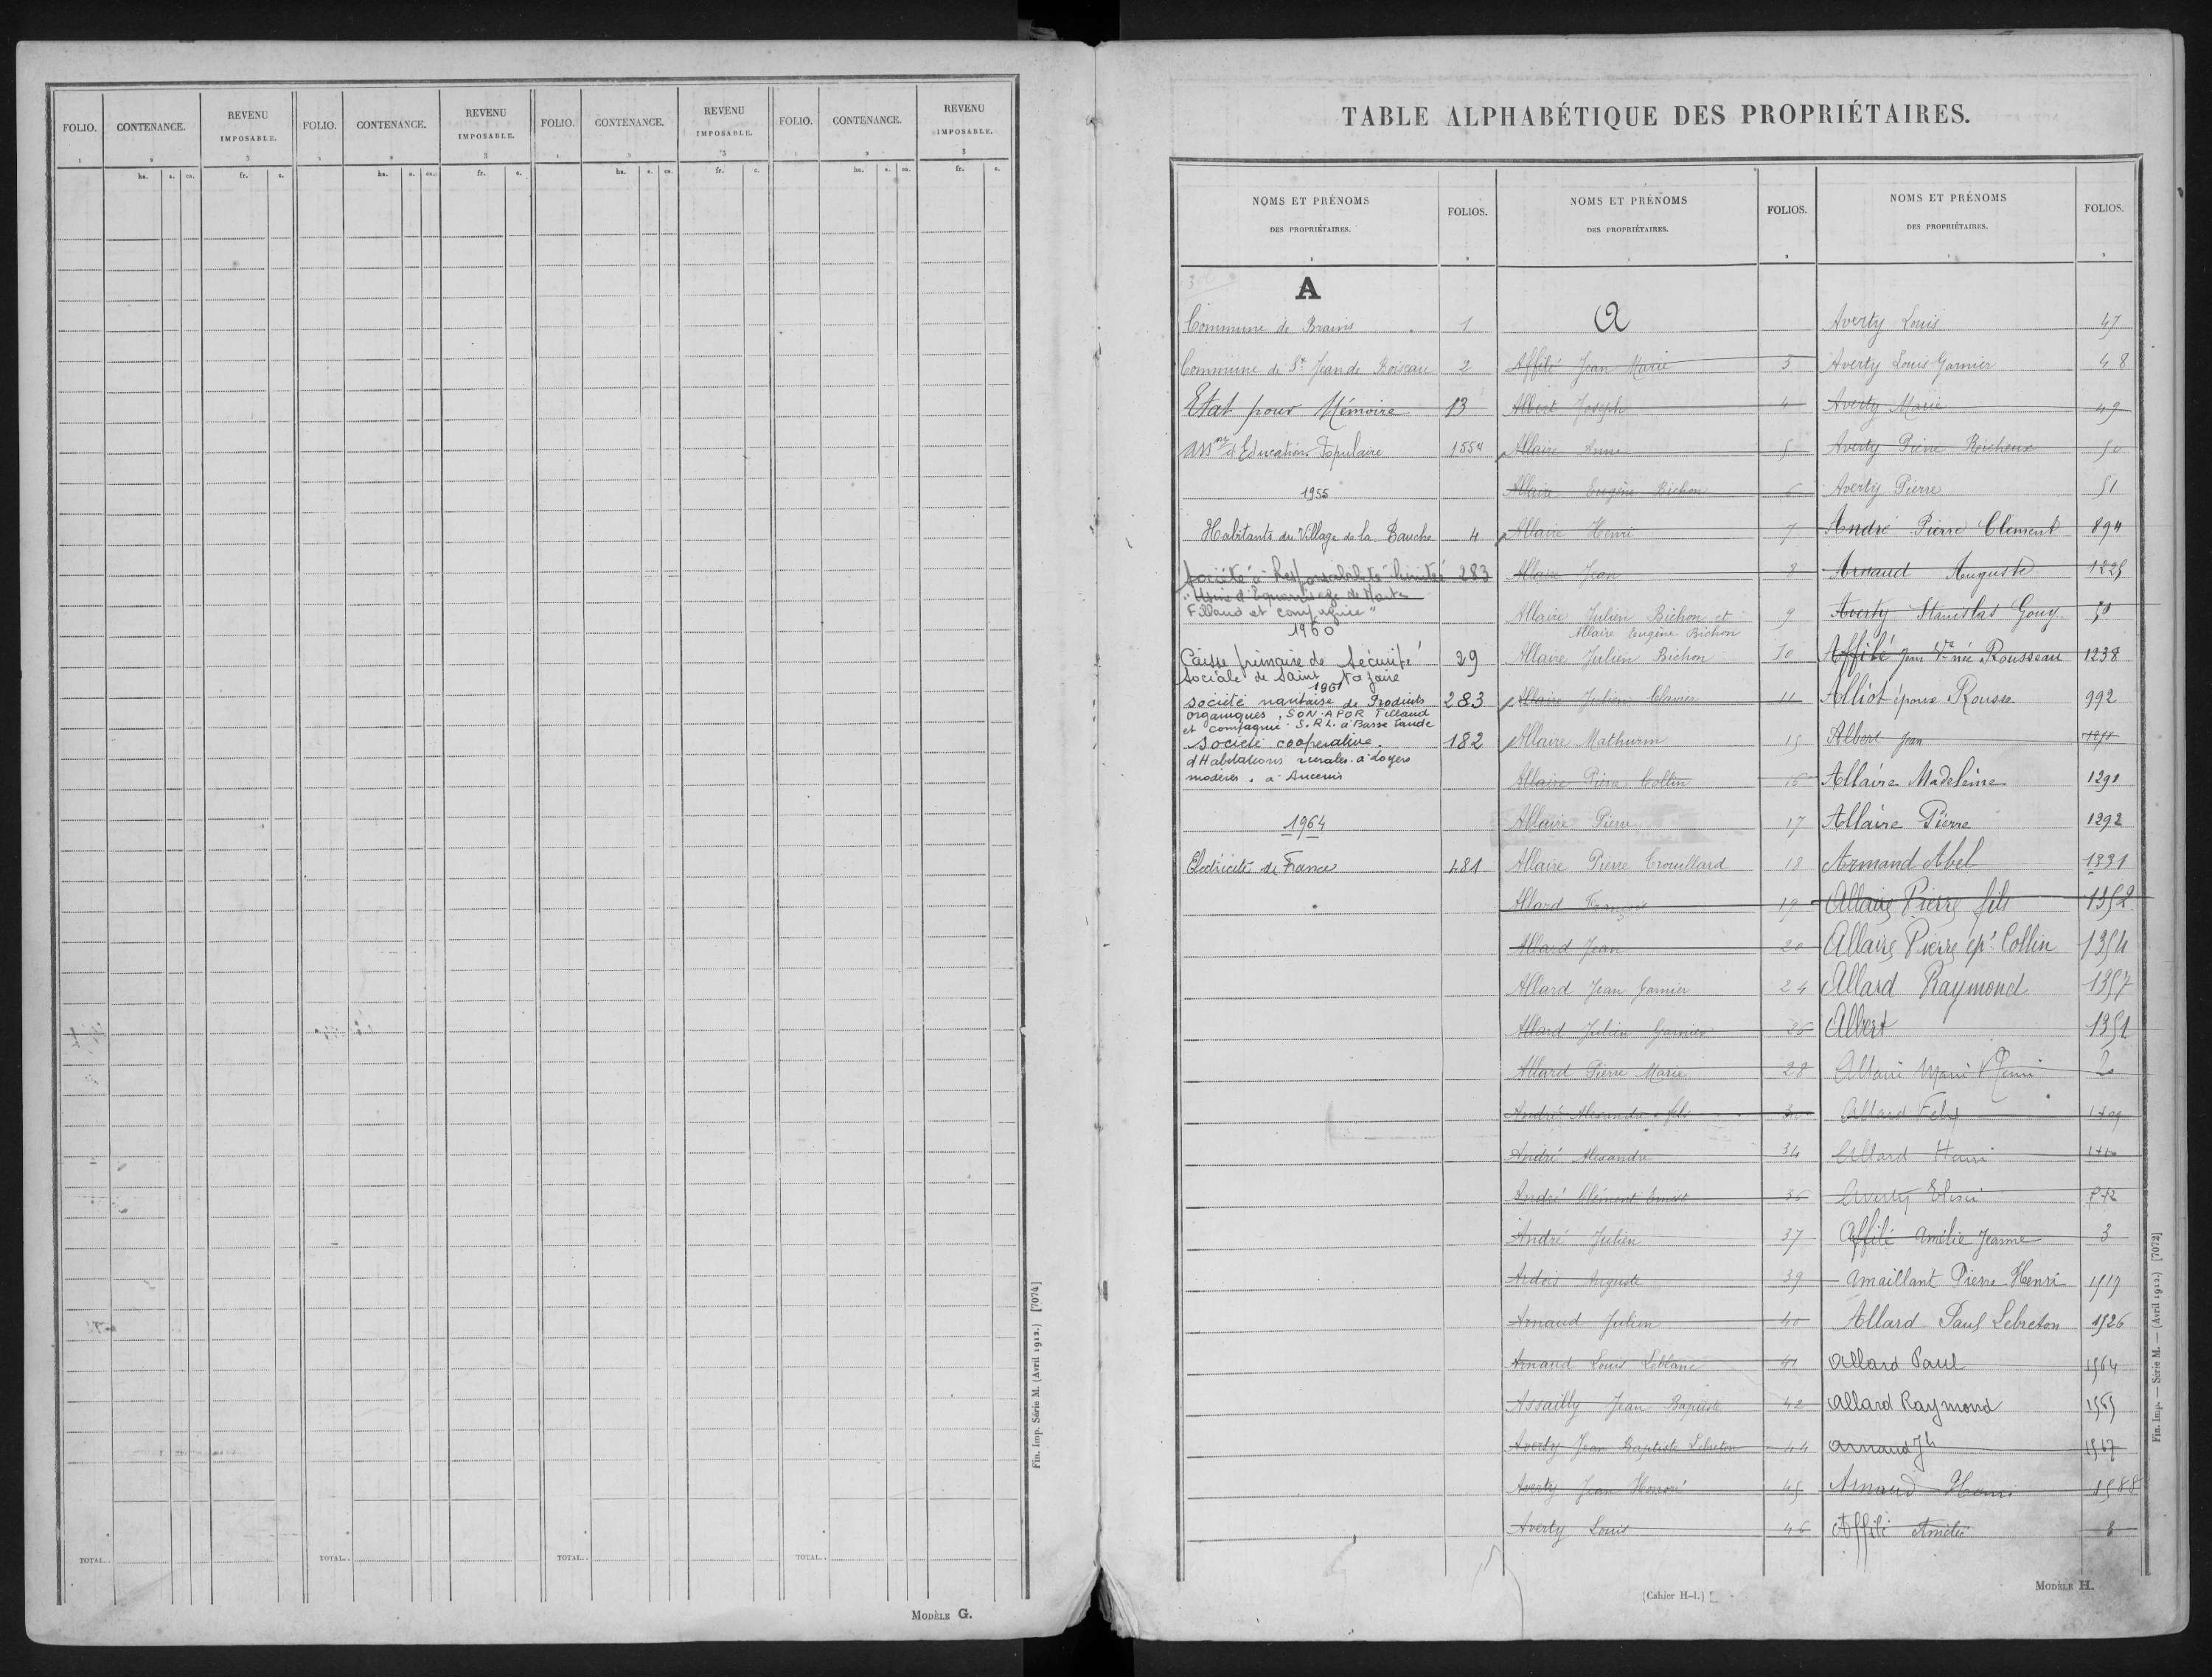 FOLIO. CONTENANCE. REVENU IMPOSABLE. FOLIO. CONTENANCE. REVENU IMPOSABLE. FOLIO. CONTENANCE. REVENU IMPOSABLE. FOLIO. CONTENANCE. REVENU IMPOSABLE.
ha. a. ca. fr. c. ha. a. ca. fr. c. ha. a. ca. fr. c. ha. a. ca. fr. c.
TOTAL.. TOTAL.. TOTAL.. TOTAL..
Fin. Imp. Série M. (Avril 1912.) [7074]
MODÈLE G.
TABLE ALPHABÉTIQUE DES PROPRIÉTAIRES.
NOMS ET PRÉNOMS DES PROPRIÉTAIRES. FOLIOS. NOMS ET PRÉNOMS DES PROPRIÉTAIRES. FOLIOS. NOMS ET PRÉNOMS DES PROPRIÉTAIRES. FOLIOS.
A
Commune de Brains 1
Commune de St Jean de Boiseau 2
Etat pour Mémoire 13
Asson d'Education Populaire 1554
1955
Habitants du Village de la Bauche 4
Société à Responsabilité limitée 283
"Usine d'Equarrissage de Nantes
Filland et compagnie"
1960
Caisse primaire de Sécurité 29
Sociale de Saint Nazaire
1961
Société nantaise de Produits 283
organiques, SON.APOR Tilland
et compagnie S.R.L. à Basse Lande
Société coopérative 182
d'Habitations rurales à loyers
modérés. à Ancenis
1964
Electricité de France 481
A
Affilé Jean Marie 3
Albert Joseph 4
Allaire Anne 5
Allaire Eugène Bichon 6
Allaire Henri 7
Allaire Jean 8
Allaire Julien Bichon et 9
Allaire Eugène Bichon
Allaire Julien Bichon 10
Allaire Julien Clavier 11
Allaire Mathurin 15
Allaire Pierre Collin 16
Allaire Pierre 17
Allaire Pierre Crouillard 18
Allard François 19
Allard Jean 20
Allard Jean Garnier 24
Allard Julien Garnier 26
Allard Pierre Marie 28
André Alexandre fils 30
André Alexandre 34
André Clément Ernest 36
André Julien 37
Ardois Auguste 39
Arnaud Julien 40
Arnaud Louis Leblanc 41
Assailly Jean Baptiste 42
Averty Jean Baptiste Lebreton 44
Averty Jean Honoré 45
Averty Louis 46
Averty Louis 47
Averty Louis Garnier 48
Averty Marie 49
Averty Pierre Richeux 50
Averty Pierre 51
André Pierre Clement 894
Arnaud Auguste 1225
Averty Stanislas Gouy 50
Affilé Jean Vve née Rousseau 1238
Alliot épouse Rousse 992
Albert Jean
Allaire Madeleine 1291
Allaire Pierre 1292
Armand Abel 1331
Allaire Pierre fils 1352
Allaire Pierre ép. Collin 1354
Allard Raymond 1357
Albert 1351
Allaire Marie
Allard Felix 1409
Allard Henri
Averty Elisée
Affilé Amélie Jeanne 3
Amaillant Pierre Henri 1519
Allard Paul Lebreton 1526
Allard Paul 1564
Allard Raymond 1565
Arnaud Jh 1567
Arnaud Henri 1588
Affilé Amélie 8
Fin. Imp. — Série M. — (Avril 1912.) [7072]
(Cahier H-1.)
MODÈLE H.